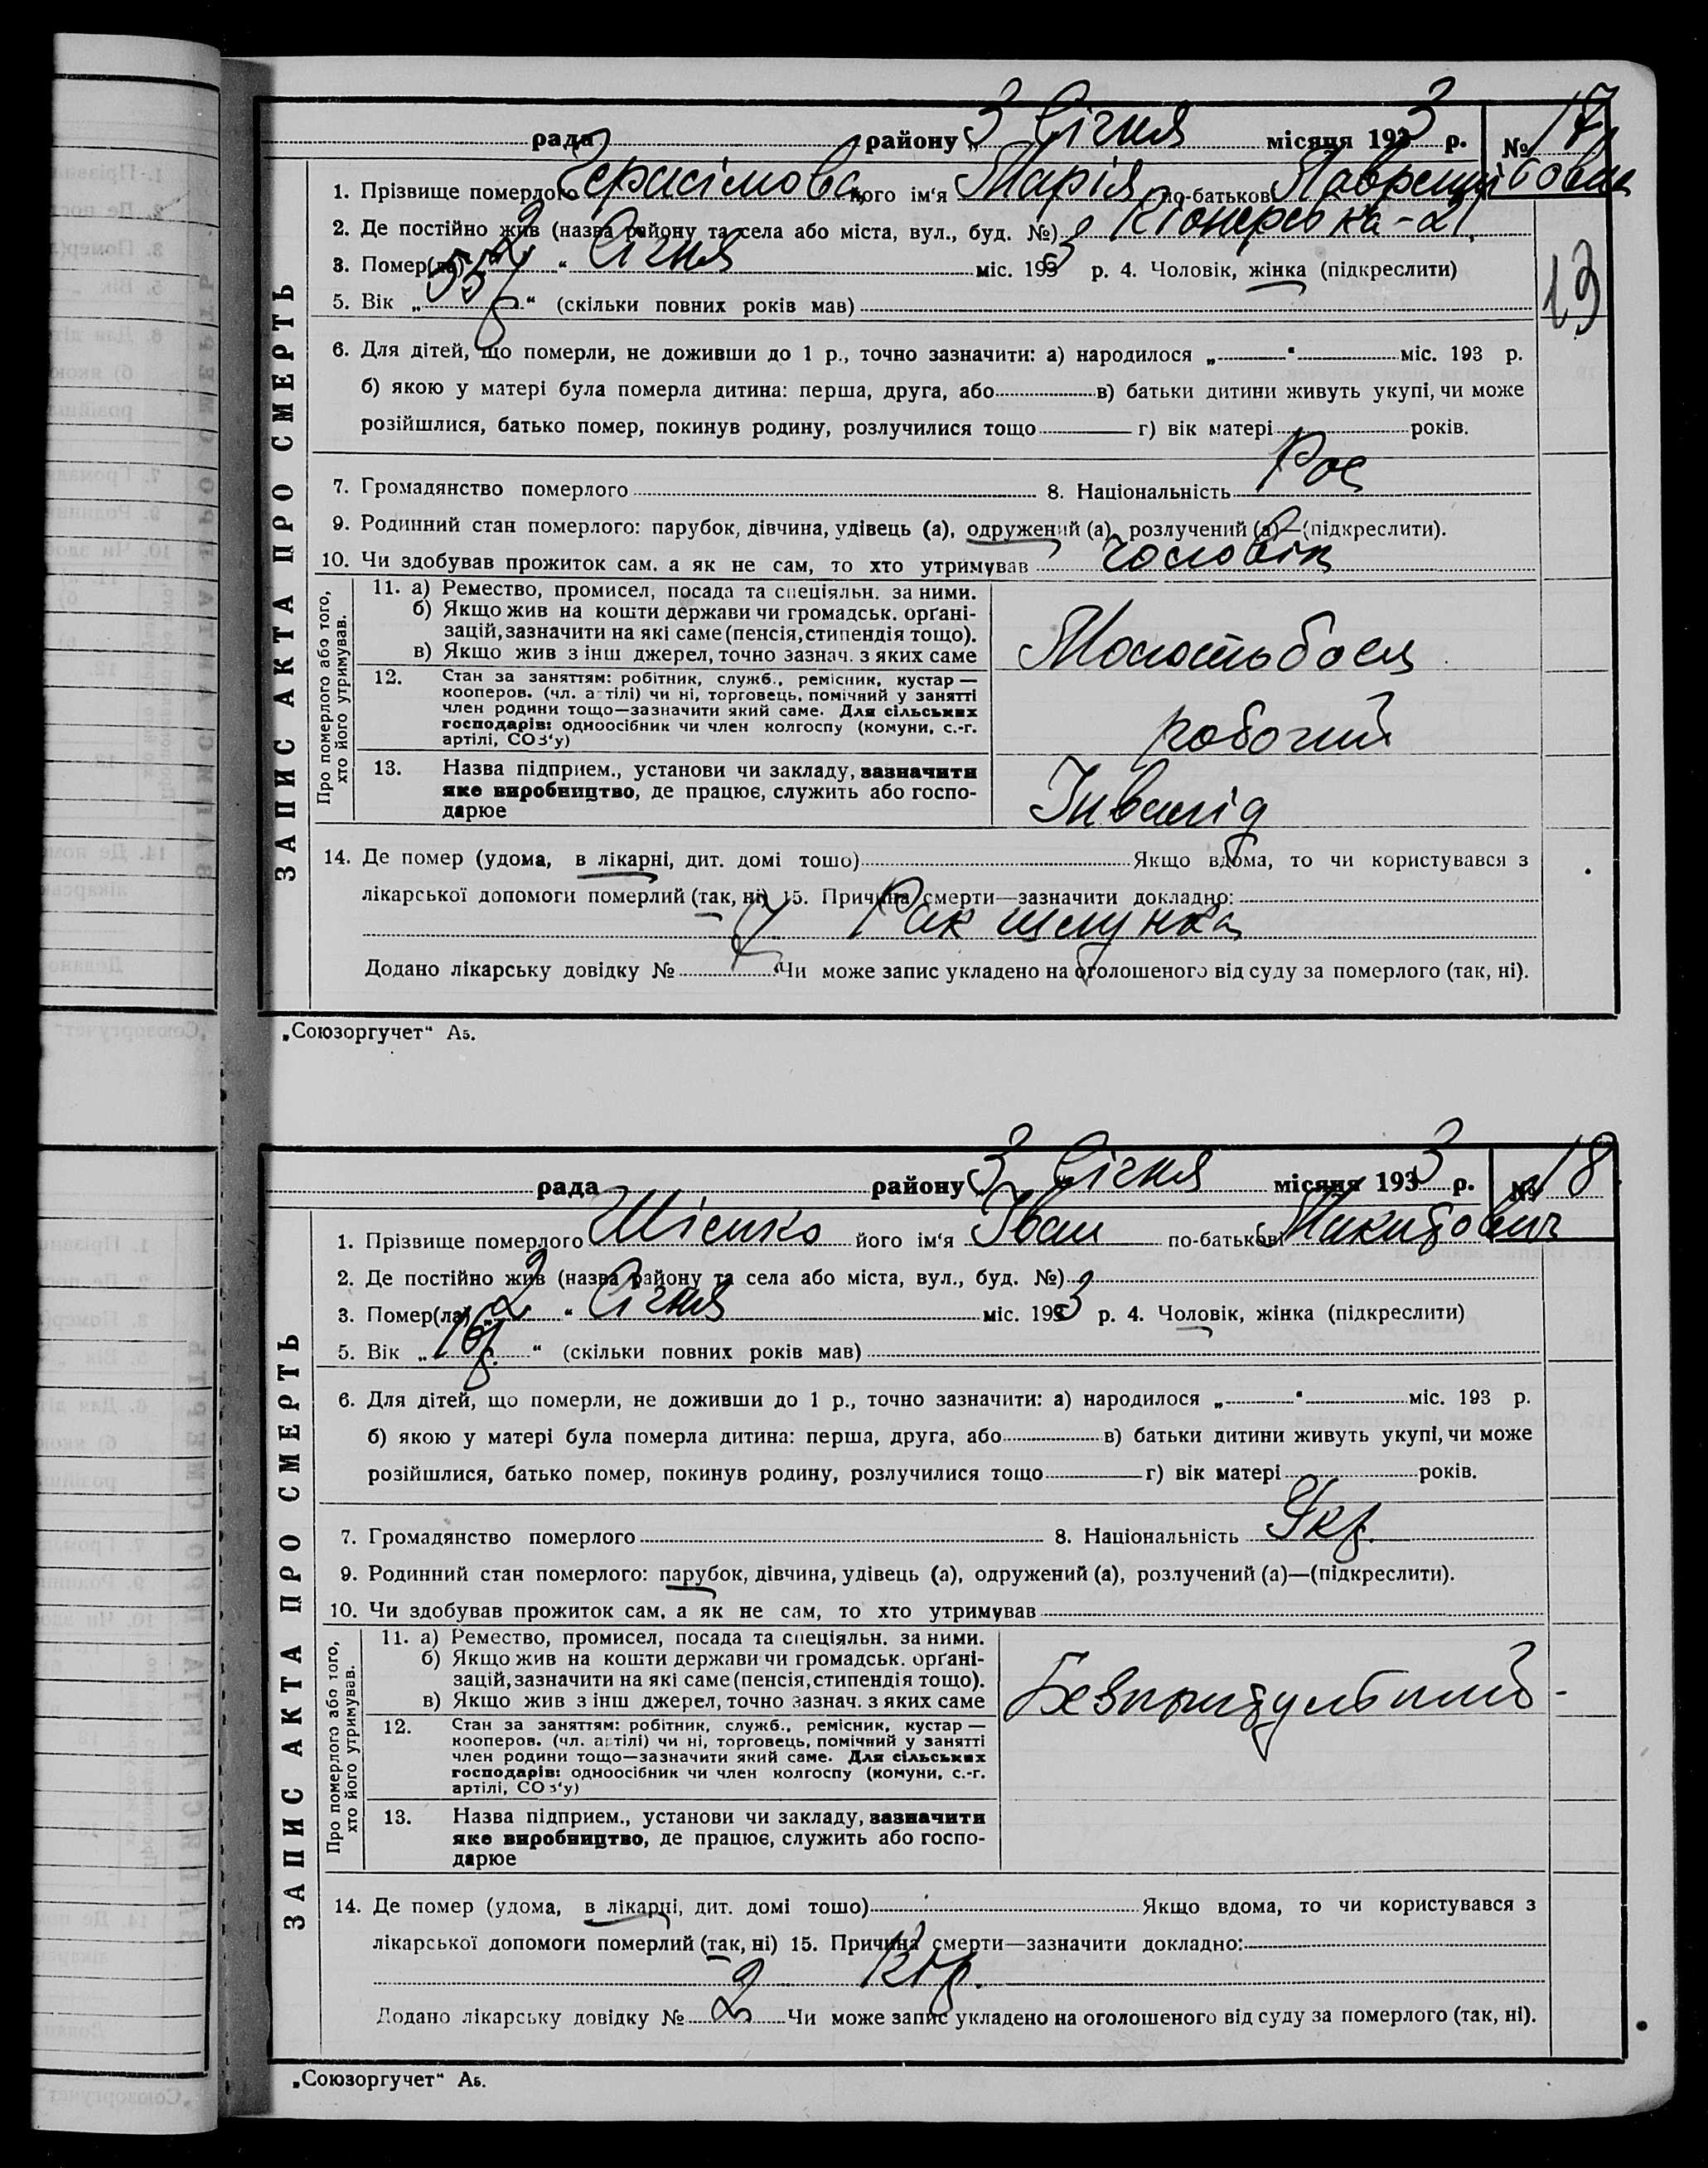 рада району „3 Січня місяця 1933 р. № 17
1. Прізвище померлого Герасімова його ім'я Марія по-батькові Лаврентьовна
2. Де постійно жив (назва району та села або міста, вул., буд. №) Піонерська-21,
3. Помер(ла) „2“ Січня міс. 1933 р. 4. Чоловік, жінка (підкреслити)
5. Вік „55 р.“ (скільки повних років мав)
13
6. Для дітей, що померли, не доживши до 1 р., точно зазначити: а) народилося „ “ міс. 193 р.
б) якою у матері була померла дитина: перша, друга, або в) батьки дитини живуть укупі, чи може
розійшлися, батько помер, покинув родину, розлучилися тощо г) вік матері років.
7. Громадянство померлого 8. Національність Рос
9. Родинний стан померлого: парубок, дівчина, удівець (а), одружений (а), розлучений (а)—(підкреслити).
10. Чи здобував прожиток сам, а як не сам, то хто утримував чоловік
ЗАПИС АКТА ПРО СМЕРТЬ
Про померлого або того, хто його утримував.
11. а) Ремество, промисел, посада та спеціяльн. за ними.
б) Якщо жив на кошти держави чи громадськ. орґані-
зацій, зазначити на які саме (пенсія, стипендія тощо).
в) Якщо жив з інш джерел, точно зазнач. з яких саме
Молотьбоец
12. Стан за заняттям: робітник, служб., ремісник, кустар —
кооперов. (чл. артілі) чи ні, торговець, помічний у занятті
член родини тощо—зазначити який саме. Для сільських
господарів: одноосібник чи член колгоспу (комуни, с.-г.
артілі, СОЗ'у)
робочий
13. Назва підприєм., установи чи закладу, зазначити
яке виробництво, де працює, служить або госпо-
дарює
Інвалід
14. Де помер (удома, в лікарні, дит. домі тощо) Якщо вдома, то чи користувався з
лікарської допомоги померлий (так, ні) 15. Причина смерти—зазначити докладно:
Рак шлунка
Додано лікарську довідку № 7 Чи може запис укладено на оголошеного від суду за померлого (так, ні).
„Союзоргучет“ А5.
рада району „3 Січня місяця 1933 р. № 18
1. Прізвище померлого його ім'я Іван по-батькові Микитович
2. Де постійно жив (назва району та села або міста, вул., буд. №)
3. Помер(ла) „2“ Січня міс. 1933 р. 4. Чоловік, жінка (підкреслити)
5. Вік „ “ (скільки повних років мав)
6. Для дітей, що померли, не доживши до 1 р., точно зазначити: а) народилося „ “ міс. 193 р.
б) якою у матері була померла дитина: перша, друга, або в) батьки дитини живуть укупі, чи може
розійшлися, батько помер, покинув родину, розлучилися тощо г) вік матері років.
7. Громадянство померлого 8. Національність Укр.
9. Родинний стан померлого: парубок, дівчина, удівець (а), одружений (а), розлучений (а)—(підкреслити).
10. Чи здобував прожиток сам, а як не сам, то хто утримував
ЗАПИС АКТА ПРО СМЕРТЬ
Про померлого або того, хто його утримував.
11. а) Ремество, промисел, посада та спеціяльн. за ними.
б) Якщо жив на кошти держави чи громадськ. орґані-
зацій, зазначити на які саме (пенсія, стипендія тощо).
в) Якщо жив з інш джерел, точно зазнач. з яких саме
12. Стан за заняттям: робітник, служб., ремісник, кустар —
кооперов. (чл. артілі) чи ні, торговець, помічний у занятті
член родини тощо—зазначити який саме. Для сільських
господарів: одноосібник чи член колгоспу (комуни, с.-г.
артілі, СОЗ'у)
13. Назва підприєм., установи чи закладу, зазначити
яке виробництво, де працює, служить або госпо-
дарює
14. Де помер (удома, в лікарні, дит. домі тощо) Якщо вдома, то чи користувався з
лікарської допомоги померлий (так, ні) 15. Причина смерти—зазначити докладно:
Додано лікарську довідку № 2 Чи може запис укладено на оголошеного від суду за померлого (так, ні).
„Союзоргучет“ А5.